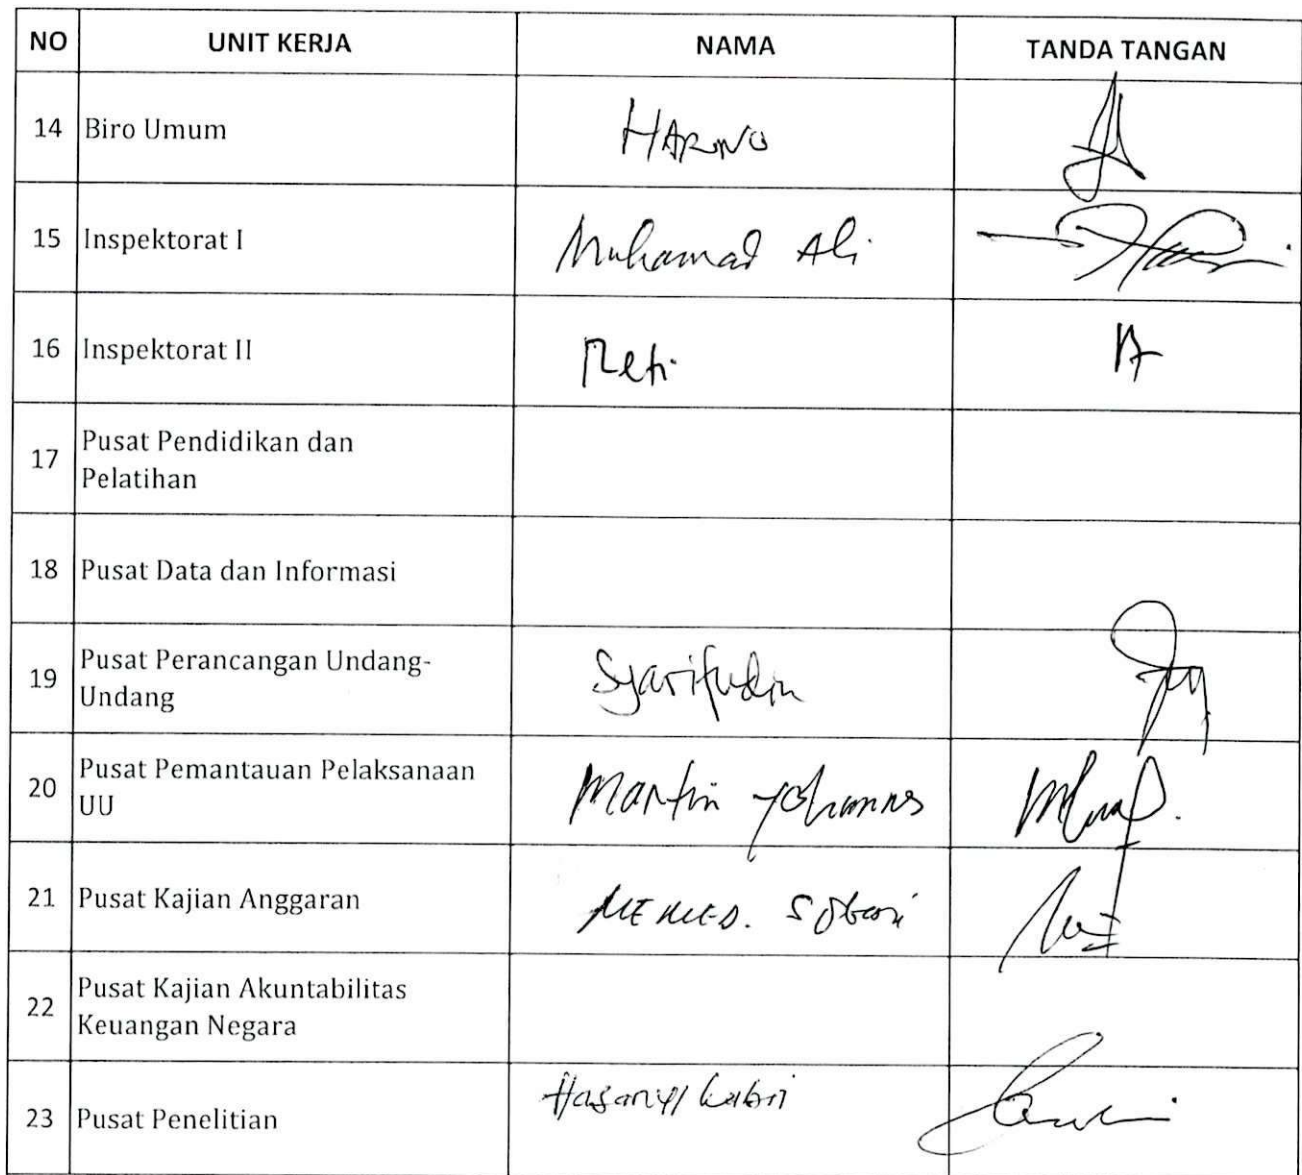 NO UNIT KERJA NAMA TANDA TANGAN
14 Biro Umum HARNO
15 Inspektorat I Muhamad Ali
16 Inspektorat II Reti
17 Pusat Pendidikan dan
Pelatihan
18 Pusat Data dan Informasi
19 Pusat Perancangan Undang-
Undang Syarifudin
20 Pusat Pemantauan Pelaksanaan
UU Martin Yohannes
21 Pusat Kajian Anggaran
22 Pusat Kajian Akuntabilitas
Keuangan Negara
23 Pusat Penelitian